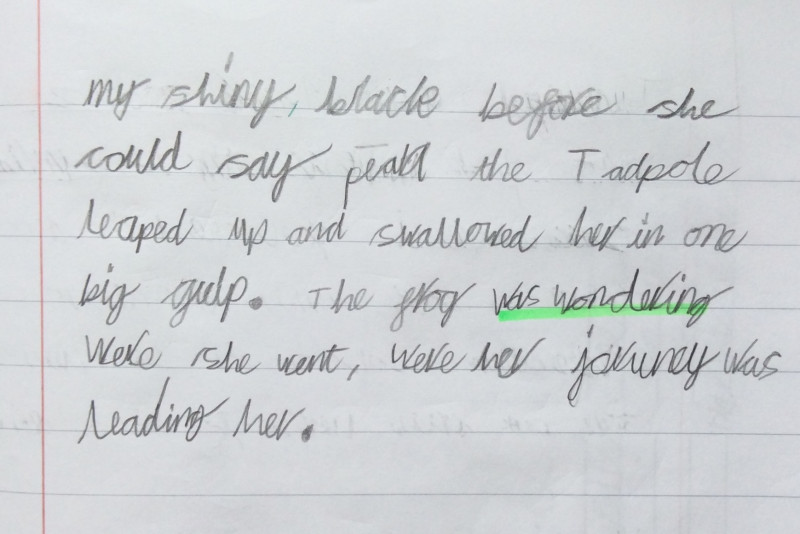 my shiny, black before she
could say pearl the Tadpole
leaped up and swallowed her in one
big gulp. The frog was wondering
were she went, were her joruney was
leading her.